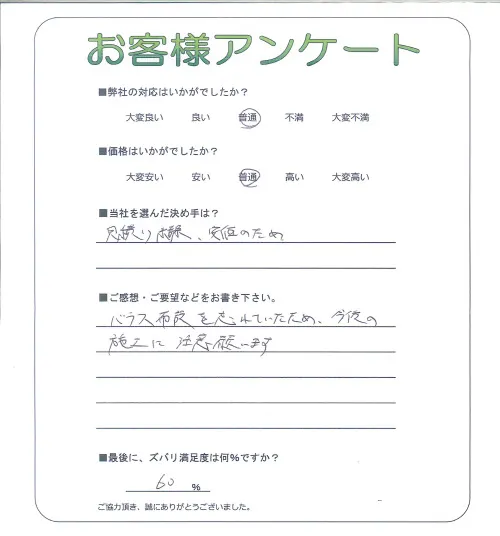 お客様アンケート
■弊社の対応はいかがでしたか？
大変良い 良い 普通 不満 大変不満
■価格はいかがでしたか？
大変安い 安い 普通 高い 大変高い
■当社を選んだ決め手は？
見積り 、安価のため
■ご感想・ご要望などをお書き下さい。
バラス布設を忘れていたため、今後の
施工に注意願います
■最後に、ズバリ満足度は何％ですか？
60 ％
ご協力頂き、誠にありがとうございました。